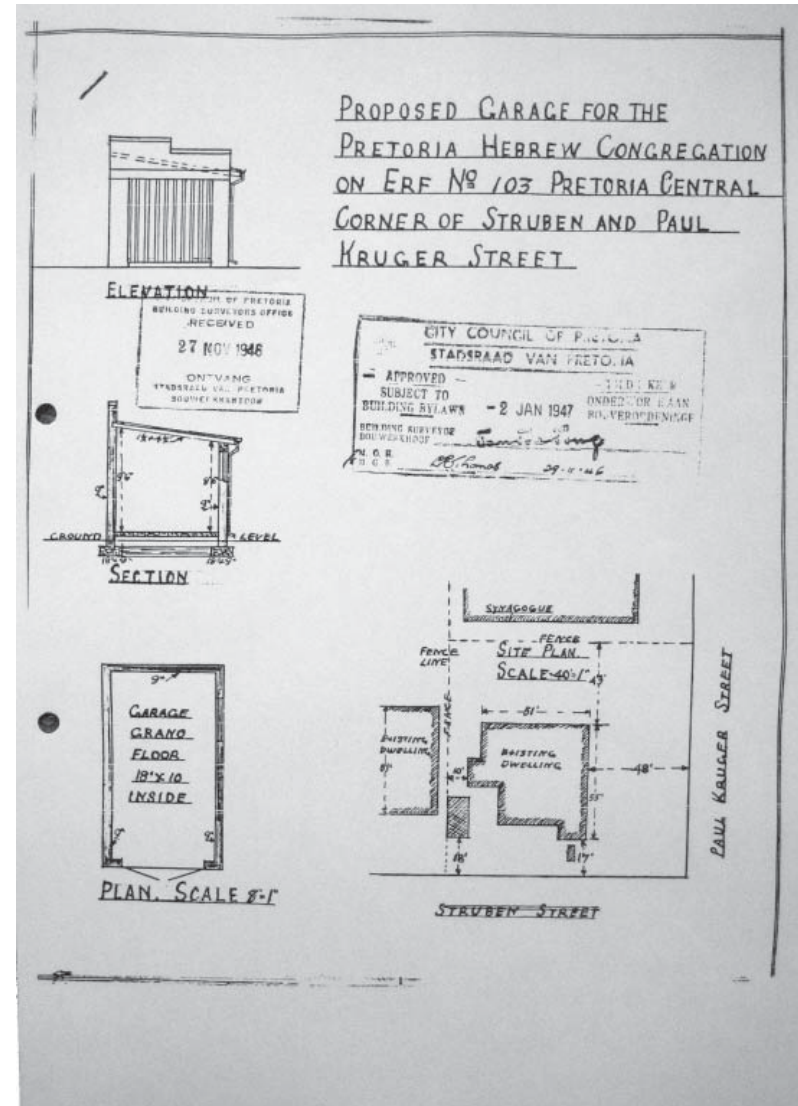 PROPOSED GARAGE FOR THE
PRETORIA HEBREW CONGREGATION
ON ERF Nº 103 PRETORIA CENTRAL
CORNER OF STRUBEN AND PAUL
KRUGER STREET
ELEVATION
OF PRETORIA
BUILDING SURVEYORS OFFICE
RECEIVED
27 NOV 1946
ONTVANG
STADSRAAD VAN PRETORIA
CITY COUNCIL OF PRETORIA
STADSRAAD VAN PRETORIA
APPROVED
SUBJECT TO
BUILDING BYLAWS
- 2 JAN 1947
BUILDING SURVEYOR
M. O. H.
29-11-46
9"
8'6"
GROUND
LEVEL
SECTION
9"
GARAGE
GRANO
FLOOR
18'X10
INSIDE
9"
9"
PLAN. SCALE 8'-1"
SYNAGOGUE
FENCE
FENCE
LINE
SITE PLAN.
SCALE-40'-1"
43'
FENCE
51'
EXISTING
DWELLING
EXISTING
DWELLING
48'
55'
18'
17'
PAUL KRUGER STREET
STRUBEN STREET